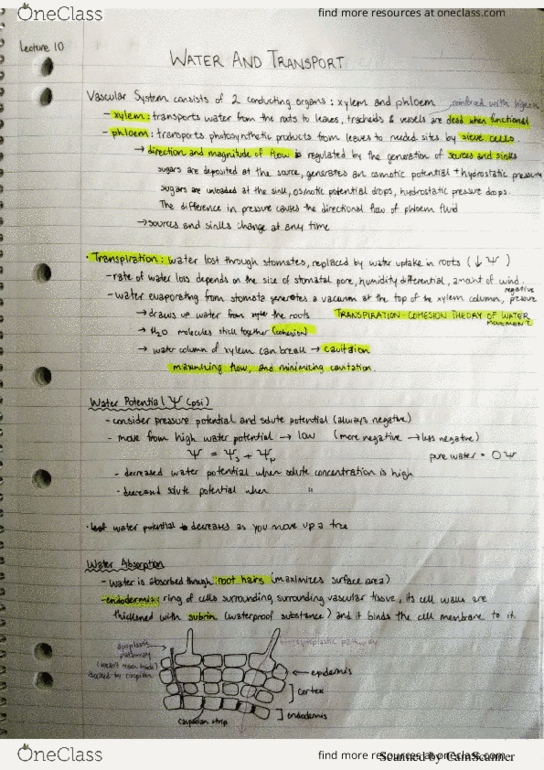 OneClass
find more resources at oneclass.com
Lecture 10
WATER AND TRANSPORT
Vascular System consists of 2 conducting organs: xylem and phloem
combined with
- xylem: transports water from the roots to leaves, tracheids & vessels are dead when functional
- phloem: transports photosynthetic products from leaves to needed sites by sieve cells.
→ direction and magnitude of flow is regulated by the generation of sources and sinks
sugars are deposited at the source, generates an osmotic potential + hydrostatic pressure
sugars are unloaded at the sink, osmotic potential drops, hydrostatic pressure drops.
The difference in pressure causes the directional flow of phloem fluid
→ sources and sinks change at any time
· Transpiration: water lost through stomates, replaced by water uptake in roots (↓ Ψ)
- rate of water loss depends on the size of stomatal pore, humidity differential, amount of wind.
- water evaporating from stomata generates a vacuum at the top of the xylem column, negative pressure
→ draws up water from the roots TRANSPIRATION-COHESION THEORY OF WATER MOVEMENT
→ H₂O molecules stick together (cohesion)
→ water column of xylem can break → cavitation
maximizing flow, and minimizing cavitation.
Water Potential Ψ (psi)
- consider pressure potential and solute potential (always negative)
- move from high water potential → low (more negative → less negative)
Ψ = Ψs + Ψp pure water = 0 Ψ
- decreased water potential when solute concentration is high
- decreased solute potential when "
water potential decreases as you move up a tree
Water Absorption
- water is absorbed through root hairs (maximizes surface area)
- endodermis: ring of cells surrounding, surrounding vascular tissue, its cell walls are
thickened with subrin (waterproof substance) and it binds the cell membrane to it.
apoplastic pathway
symplastic pathway
blocked by casparian
epidermis
cortex
casparian strip
endodermis
OneClass
find more resources at oneclass.com
Scanned by CamScanner